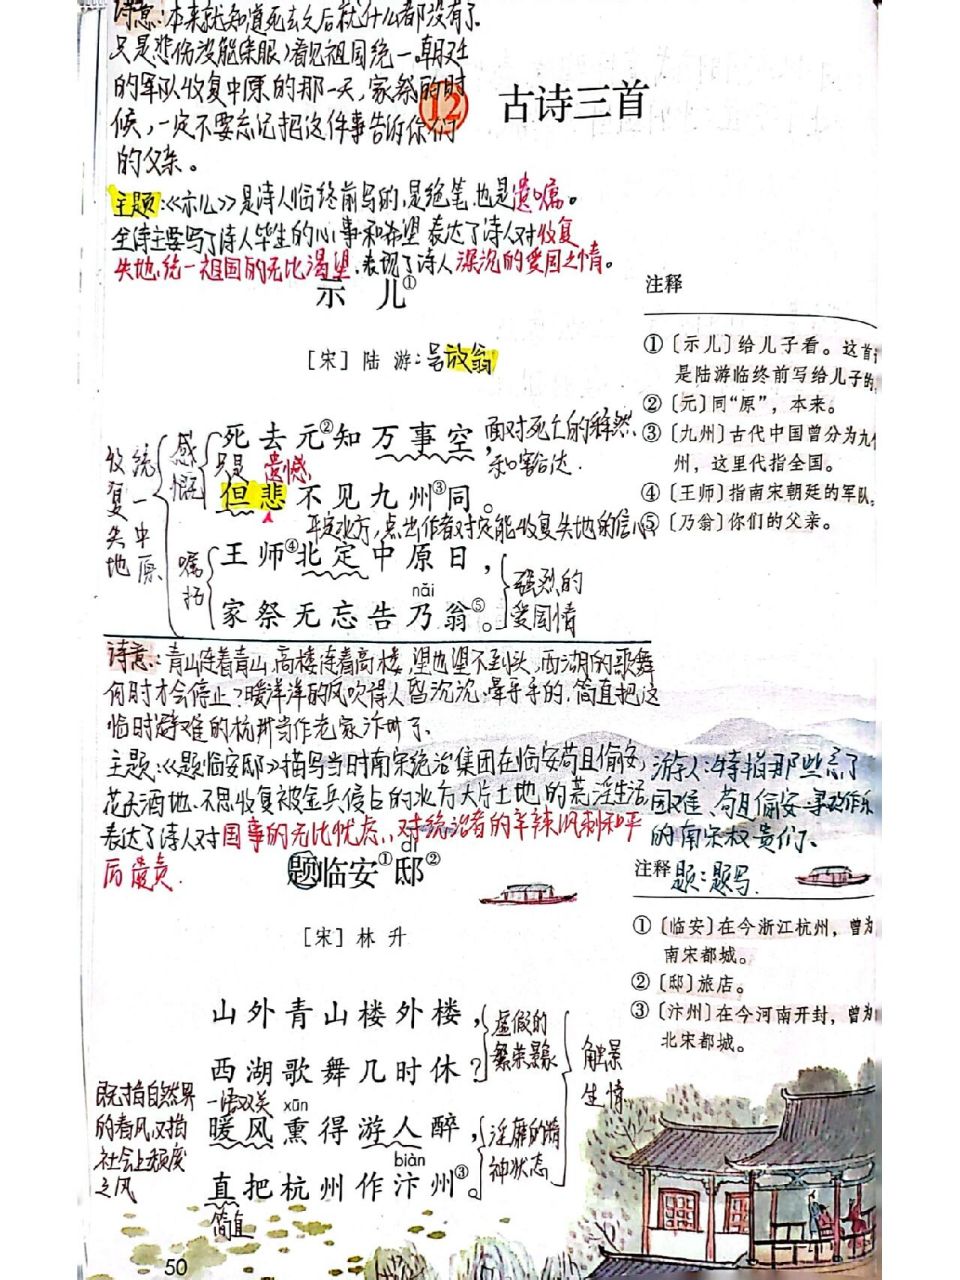 诗意:本来就知道死去之后就什么都没有了.
只是悲伤没能亲眼看见祖国统一.朝廷
的军队收复中原的那一天,家祭的时
候,一定不要忘记把这件事告诉你们
的父亲。
12 古诗三首
主题:《示儿》是诗人临终前写的,是绝笔也是遗嘱。
全诗主要写了诗人毕生的心事和希望 表达了诗人对收复
失地,统一祖国的无比渴望,表现了诗人深沉的爱国之情。
示 儿①
[宋] 陆 游:号放翁
收复失地
统一中原
感慨
死去元②知万事空,
面对死亡的释然、
和豁达.
只是 遗憾
但悲不见九州③同。
平定北方,点出作者对定能收复失地的信心
嘱托
王师④北定中原日,
nǎi
家祭无忘告乃翁⑤。
强烈的
爱国情
注释
①〔示儿〕给儿子看。这首
是陆游临终前写给儿子的
②〔元〕同“原”,本来。
③〔九州〕古代中国曾分为九
州,这里代指全国。
④〔王师〕指南宋朝廷的军队。
⑤〔乃翁〕你们的父亲。
诗意:青山连着青山,高楼连着高楼,望也望不到头,西湖的歌舞
何时才会停止?暖洋洋的风吹得人昏沉沉,晕乎乎的.简直把这
临时避难的杭州当作老家汴州了、
主题:《题临安邸》描写当时南宋统治集团在临安苟且偷安,
花天酒地、不思收复被金兵侵占的北方大片土地的荒淫生活
表达了诗人对国事的无比忧虑,对统治者的辛辣讽刺和严
厉谴责.
游人:特指那些忘了
国难、苟且偷安 寻欢作乐
的南宋权贵们、
dǐ
题临安①邸②
[宋] 林 升
山外青山楼外楼,
西湖歌舞几时休?
虚假的
繁荣景象
一语双关 xūn
暖风熏得游人醉,
biàn
直把杭州作汴州③。
简直
淫靡的精
神状态
触景
生情
既指自然界
的春风,又指
社会上颓废
之风
注释 题:题写.
①〔临安〕在今浙江杭州,曾为
南宋都城。
②〔邸〕旅店。
③〔汴州〕在今河南开封,曾为
北宋都城。
50